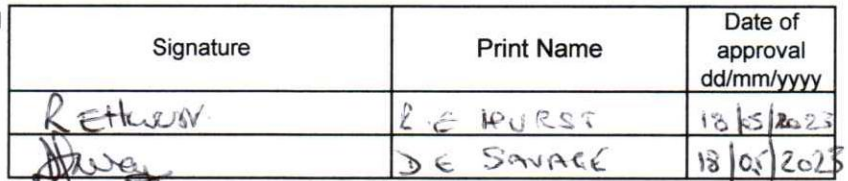 Signature Print Name Date of approval dd/mm/yyyy
R E HURST 18/05/2023
D E SAVAGE 18/05/2023